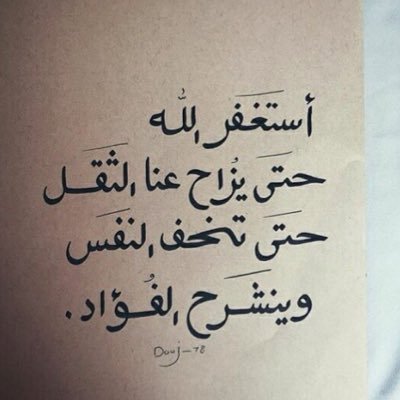 أستَغَفر الله
حتىَ يزُاح عنا الثَقل
حتىَ تخف النفَس
وينشَرح الفُؤاد.
Douj-78